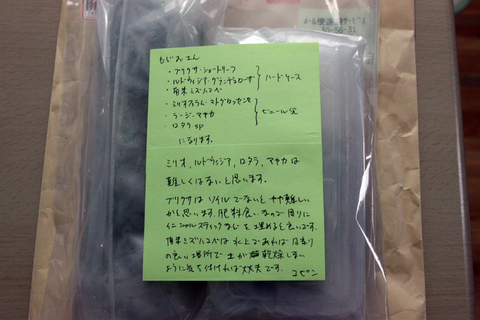 もじおさん
・ブリクサ・ショートリーフ
・ルドウィジア・グランデュローサ ハードケース
・有茎ミズハコベ
・ミリオフィラム・マトグロッセンセ
・ラージ・マヤカ ビニール袋
・ロタラ sp
になります。
ミリオ、ルドウィジア、ロタラ、マヤカは
難しくはないと思います。
ブリクサはソイルでないとやや難しい
かと思います。肥料食いなので周りに
イニシャルスティックなどを埋めると良いです。
有茎ミズハコベは水上であれば日当り
の良い場所で土が乾燥しない
ように気を付ければ大丈夫です。
メール便 サービス